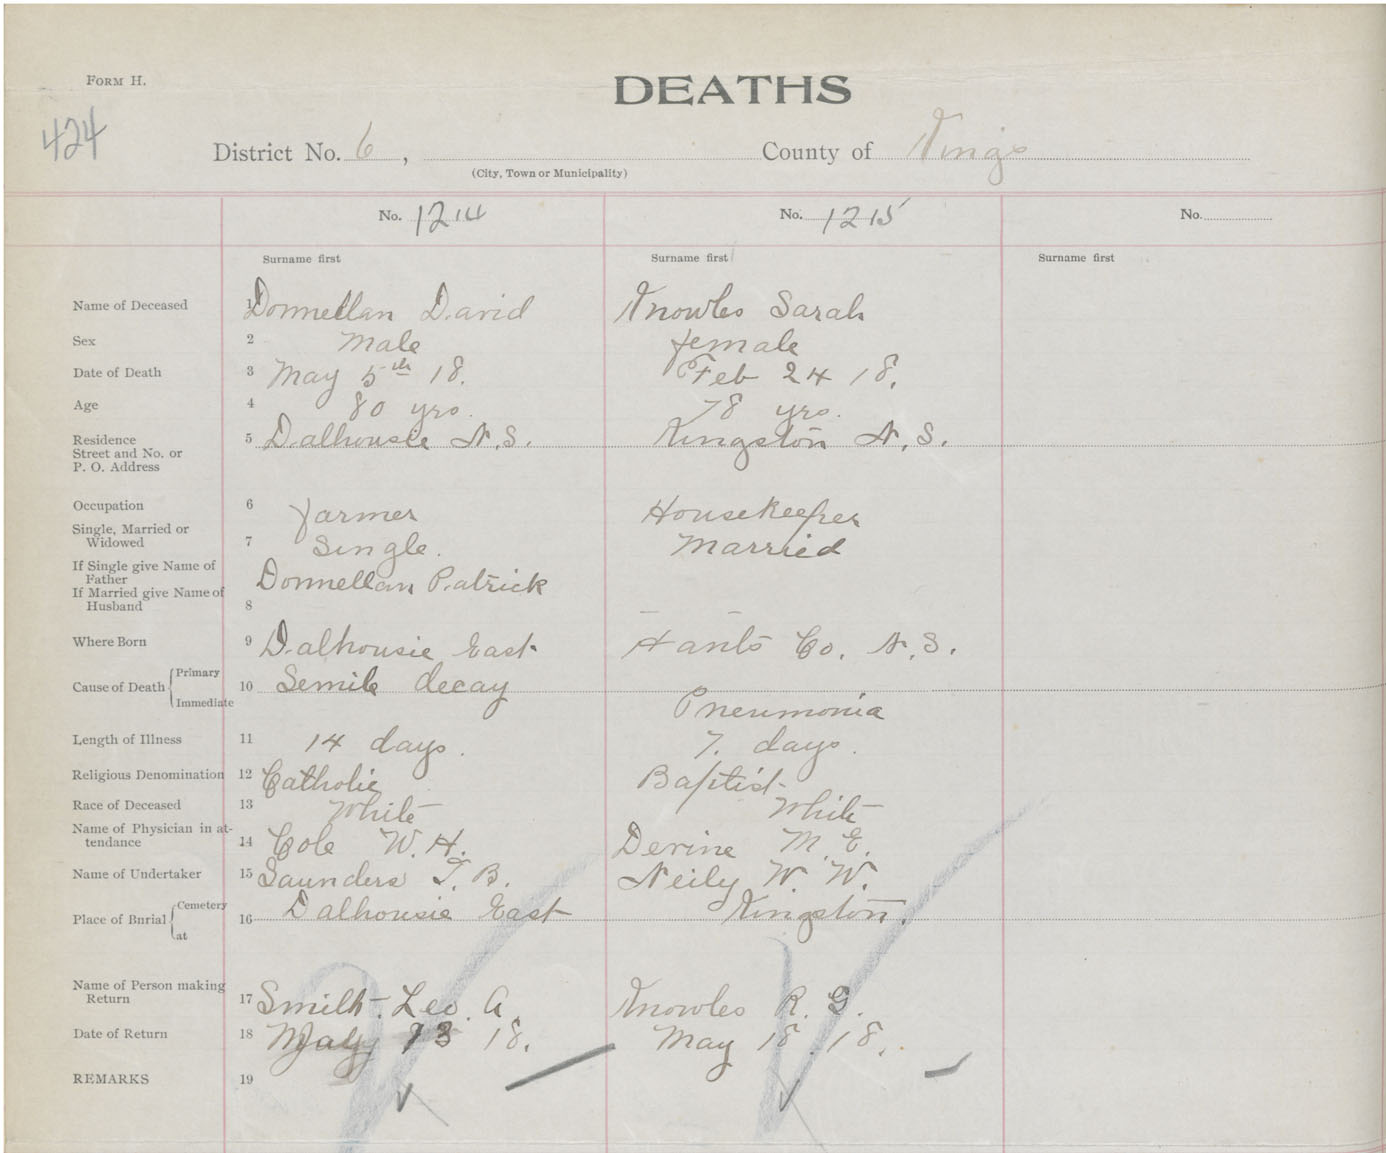 FORM H.
DEATHS
424
District No. 6, County of Kings
(City, Town or Municipality)
No. 1214 No. 1215 No.
Surname first Surname first Surname first
Name of Deceased 1 Donnellan David Knowles Sarah
Sex 2 Male female
Date of Death 3 May 5th 18. Feb 24 18.
Age 4 80 yrs. 78 yrs.
Residence 5 Dalhousie N.S. Kingston N.S.
Street and No. or
P. O. Address
Occupation 6 farmer Housekeeper
Single, Married or
Widowed 7 Single. Married
If Single give Name of
Father Donnellan Patrick
If Married give Name of
Husband 8
Where Born 9 Dalhousie East Hants Co. N.S.
Cause of Death Primary 10 Semile decay
Immediate Pneumonia
Length of Illness 11 14 days. 7. days.
Religious Denomination 12 Catholic Baptist
Race of Deceased 13 White White
Name of Physician in at-
tendance 14 Cole W. H. Devine M. E.
Name of Undertaker 15 Saunders T. B. Neily W. W.
Place of Burial Cemetery 16 Dalhousie East Kingston.
at
Name of Person making
Return 17 Smith Leo. A. Knowles R. G.
Date of Return 18 18. May 18. 18.
REMARKS 19